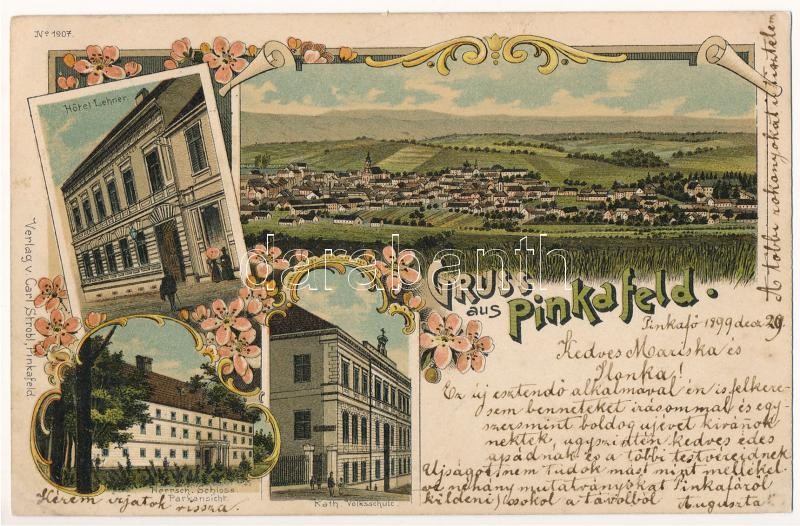 No 1907.
Hôtel Lehner.
GRUSS
aus Pinkafeld.
Verlag v. Carl Strobl, Pinkafeld
Herrsch. Schloss
Parkansicht.
Kath. Volksschule.
darabanth
Pinkafő 1899 dec 29
Kedves Mariska és
Ilonka!
Ez új esztendő alkalmával én is felkere-
sem benneteket írásommal és egy-
szersmint boldog ujévet kívánok
nektek, ugyszintén kedves édes
apádnak és a többi testvéreidnek
Ujságot, nem tudok mást mint mellékel-
ve nehány mutatványokat Pinkafőről
küldeni! Csokol a távolból
Auguszta
Kérem irjatok vissza.
A többi rokonyokat tisztelem